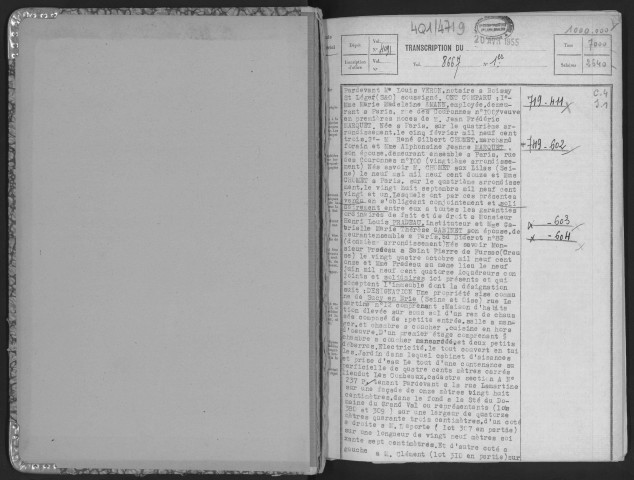 4Q1/4719
20 AVR 1955
1.000.000
Dépôt
Vol.
N° 4091
TRANSCRIPTION DU
Taxe
7000
Inscription d'office
Vol.
N°
Vol. 8667 N° 1er
Salaire
2640
Pardevant Me Louis VERON, notaire à Boissy
St Léger(S&O) soussigné, ONT COMPARU ; 1°-
Mme Marie Madeleine employée, demeu-
rant à Paris, rue des Couronnes n°100, veuve
en premières noces de M. Jean Frédéric
MARQUET, Née à Paris, sur le quatrième ar-
rondissement, le cinq février mil neuf cent
trois. 2°- M René Gilbert CHOMET, marchand
forain et Mme Alphonsine Jeanne MARQUET,
son épouse, demeurant ensemble à Paris, rue
des Couronnes n°100 (vingtième arrondisse-
ment) Nés savoir M. CHOMET aux Lilas (Sei-
ne) le neuf mai mil neuf cent douze et Mme
CHOMET à Paris, sur le quatrième arrondisse
ment, le vingt huit septembre mil neuf cent
vingt et un. Lesquels ont par ces présentes
vendu en s'obligeant conjointement et soli
dairement entre eux à toutes les garanties
ordinaires de fait et de droit à Monsieur
Henri Louis PRADEAU, Instituteur et Mme Ga-
brielle Marie Thérèse son épouse, de-
meurant ensemble à Paris, Bd Diderot n°82
(douzième arrondissement) Nés savoir Mon-
sieur Pradeau à Saint Pierre de Fursac(Creu
se) le vingt quatre octobre mil neuf cent
onze et Mme Pradeau au même lieu le neuf
juin mil neuf cent quatorze, acquéreurs con-
joints et solidaires ici présents et qui
acceptent l'immeuble dont la désignation
suit ; DESIGNATION Une propriété sise commu
ne de Sucy en Brie (Seine et Oise) rue La
martine n°12 comprenant ; Maison d'habita
tion élevée sur sous sol d'un rez de chaus
sée composé de ; petite entrée, salle à man-
ger, et chambre à coucher, cuisine en hors
d'oeuvre. D'un premier étage comprenant 2
chambres à coucher mansardée, et deux petits
débarras. Electricité, le tout couvert en tui
les. Jardin dans lequel cabinet d'aisances
et prise d'eau Le tout d'une contenance su
perficielle de quatre cents mètres carrés
lieudit Les cadastré section A N°
237 tenant Pardevant à la rue Lamartine
sur une façade de onze mètres vingt huit
centimètres, dans le fond à la Sté du Do-
maine du Grand Val ou représentants (lots
308 et 309 ) sur une largeur de quatorze
mètres quarante trois centimètres, d'un coté
à droite à M. Laporte ( lot 307 en partie)
sur une longueur de vingt neuf mètres soi
xante sept centimètres. Et d'autre coté à
gauche à M. Clément (lot 312 en partie)sur
719-411
749-602
-603
-604